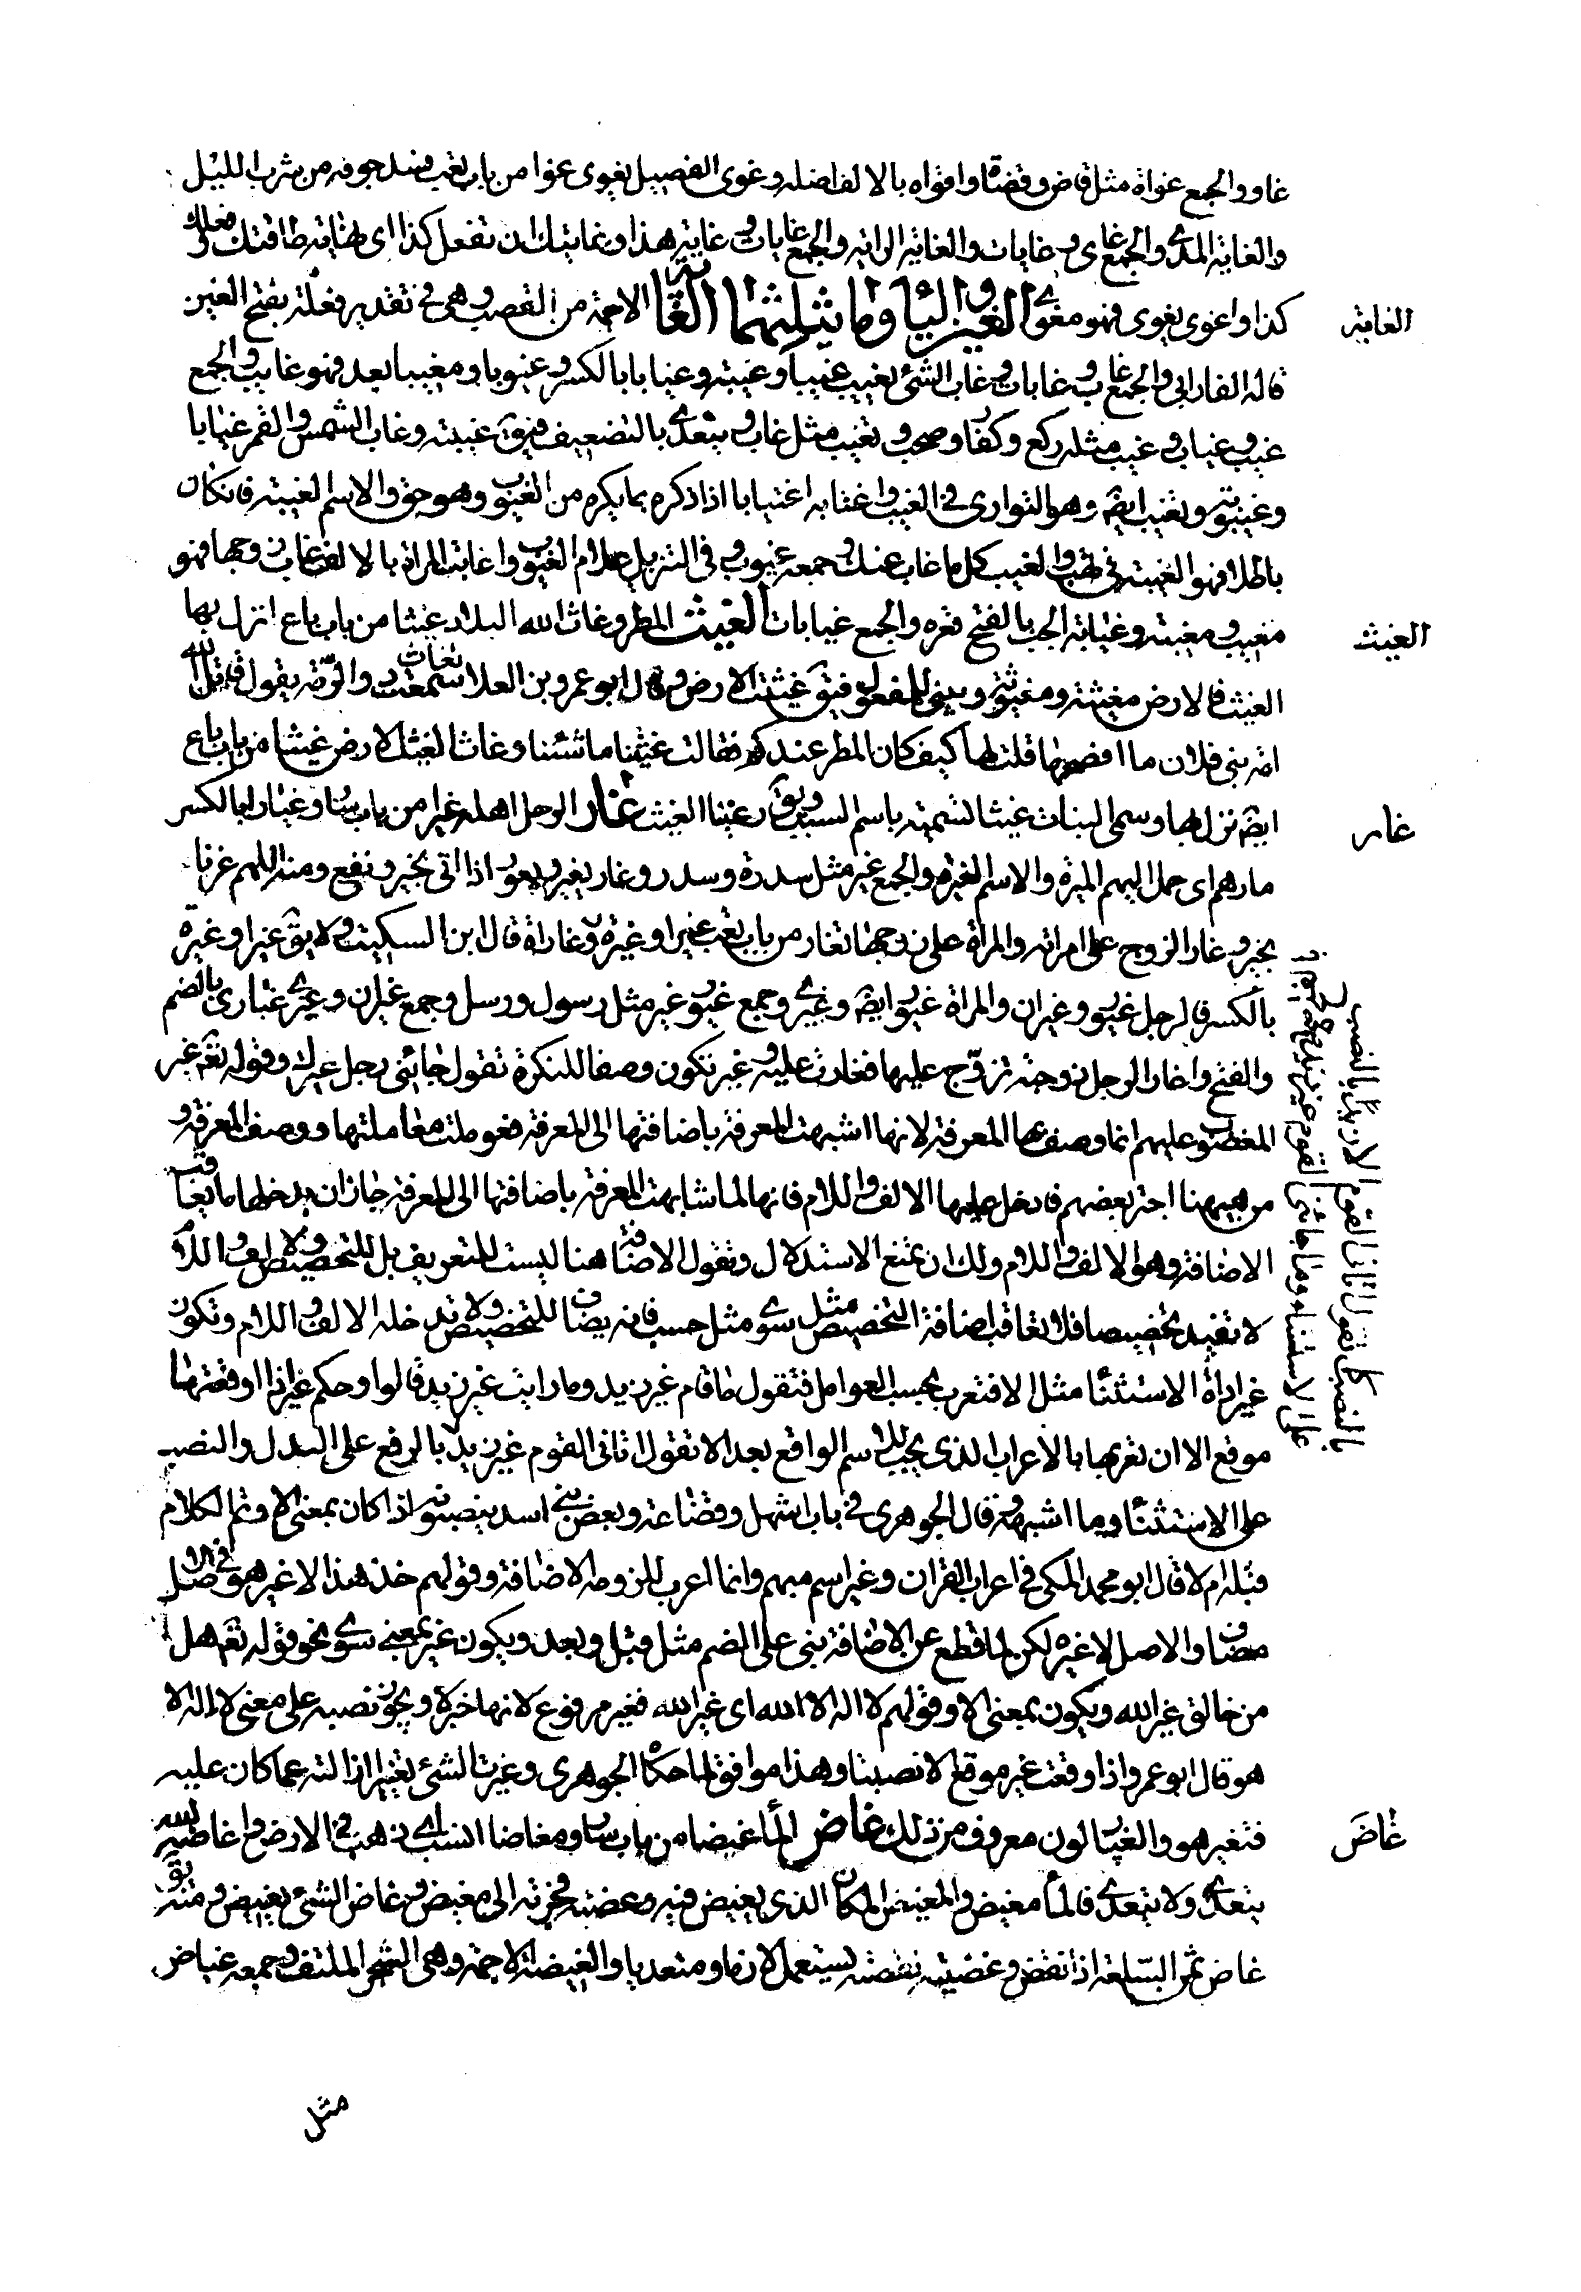 غاو والجمع غواة مثل قاض وقضاة واغواه بالالف اضله وغوى الفصيل يغوى غوا من باب تعب فسد جوفه من شرب اللبن
والغاية المدى والجمع غاى وغايات والغاية الراية والجمع غايات وغاية هذا وغايتك ان تفعل كذا اى نهاية طاقتك او فعلك
الغابة
كذا واغوى يغوى فهو مغوى الغين والياء وما يثلثهما الغابة الاجمة من القصب وهى فى تقدير فعلة بفتح العين
قاله الفارابى والجمع غاب وغابات وغاب الشئ يغيب غيبا وغيبة وغيابا بالكسر وغيوبا ومغيبا بعد فهو غايب والجمع
غيب وغياب وغيب مثله ركع وكفار وصحب وتغيب مثل غاب ويتعدى بالتضعيف فيق غيبته وغاب الشمس والقمر غيابا
وغيبوبة وتغيب ايضا وهو التوارى فى الغيب واغتابه اغتيابا اذا ذكره بما يكره من العيوب وهو حق والاسم الغيبة فان كان
باطلا فهو الغيبة فى بهت والغيب كل ما غاب عنك وجمعه غيوب وفى التنزيل علام الغيوب واغابت المراة بالالف غاب زوجها فهو
الغيث
مغيب ومغيبة وغيابة الجب بالفتح قعره والجمع غيابات الغيث المطر وغاث الله البلاد غيثا من باب باع انزل بها
الغيث فالارض مغيثة ومغيوثة ويبنى للمفعول فيق غيثت الارض تغاث وقال ابو عمرو بن العلا سمعت ذو الرمة يقول قاتل الله
امة بنى فلان ما افصحها قلت لها كيف كان المطر عندكم فقالت غيثنا ما شئنا وغاث الغيث الارض غيثا من باب باع
غار
ايضا نزل بها وسمى النبات غيثا تسمية باسم السبب ويق رعينا الغيث غار الرجل اهله غيرا من باب سار وغيارا بالكسر
مارهم اى حمل اليهم الميرة والاسم الغيرة والجمع غير مثل سدرة وسدر وغار يغير ويغور اذا اتى بخير ونفع ومنه اللهم غرنا
بخير وغار الزوج على امراته والمراة على زوجها تغار من باب تعب غيرا وغيرة وغارا قال ابن السكيت ولا يق غيرا وغيرة
بالكسر فالرجل غيور وغيران والمراة غيور ايضا وغيرى وجمع غيور غير مثل رسول ورسل وجمع غيران وغيرى غيارى بالضم
والفتح واغار الرجل زوجته تزوج عليها فغارت عليه وغير تكون وصفا للنكرة تقول جائنى رجل غيرك وقوله تعم غير
المغضوب عليهم انما وصف بها المعرفة لانها اشبهت المعرفة باضافتها الى المعرفة فعوملت معاملتها ووصف المعرفة و
من ههنا اجتر بعضهم فادخل عليها الالف واللام فانها لما شابهت المعرفة باضافتها الى المعرفة جاز ان يدخلها ما يعاقب
الاضافة وهو الالف واللام ولك ان تمنع الاستدلال وتقول الاضافة هنا ليست للتعريف بل للتخصيص والالف واللام
لا تفيد تخصيصا فلا تعاقب اضافة التخصيص مثل سوى مثل حسب فانه يضاف للتخصيص ولا تدخله الالف واللام وتكون
غير اداة الاستثناء مثل الا فتعرب بحسب العوامل فتقول ما قام غير زيد وما رايت غير زيد قالوا وحكم غير اذا اوقعتها
موقع الا ان تعربها بالاعراب الذى يجب للاسم الواقع بعد الا تقول اتانى القوم غير زيد بالرفع على البدل والنصب
على الاستثناء وما اشبهه قال الجوهرى فى باب اشهل وقضاعة وبعض بنى اسد ينصبونه اذا كان بمعنى الا وتم الكلام
قبله ام لا قال ابو محمد المكى فى اعراب القران وغير اسم مبهم وانما اعرب للزومه الاضافة وقولهم خذ هذا لا غير هو فى الاصل
مضاف والاصل لا غيره لكن لما قطع عن الاضافة بنى على الضم مثل قبل وبعد ويكون غير بمعنى سوى نحو قوله تعم هل
من خالق غير الله ويكون بمعنى الا وقولهم لا اله الا الله اى غير الله فغير مرفوع لانها خبر لا ويجوز نصبه على معنى لا اله الا
هو قال ابو عمرو اذا وقعت غير موقع الا نصبنا وهذا موافق لما حكاه الجوهرى وغيرت الشئ تغييرا ازلته عما كان عليه
غاض
فتغير هو والغيار لون معروف من ذلك غاض الماء غيضا من باب سار ومغاضا انساب اى ذهب فى الارض واغاضه الله
يتعدى ولا يتعدى فالماء مغيض والمغيض المكان الذى يغيض فيه وغضته فجرته الى مغيض وغاض الشئ يغيض ومنه يق
غاض ثمن السلعة اذا نقص وغضته نقصته يستعمل لازما ومتعديا والغيضة الاجمة وهى الشجر الملتف وجمعه غياض
مثل